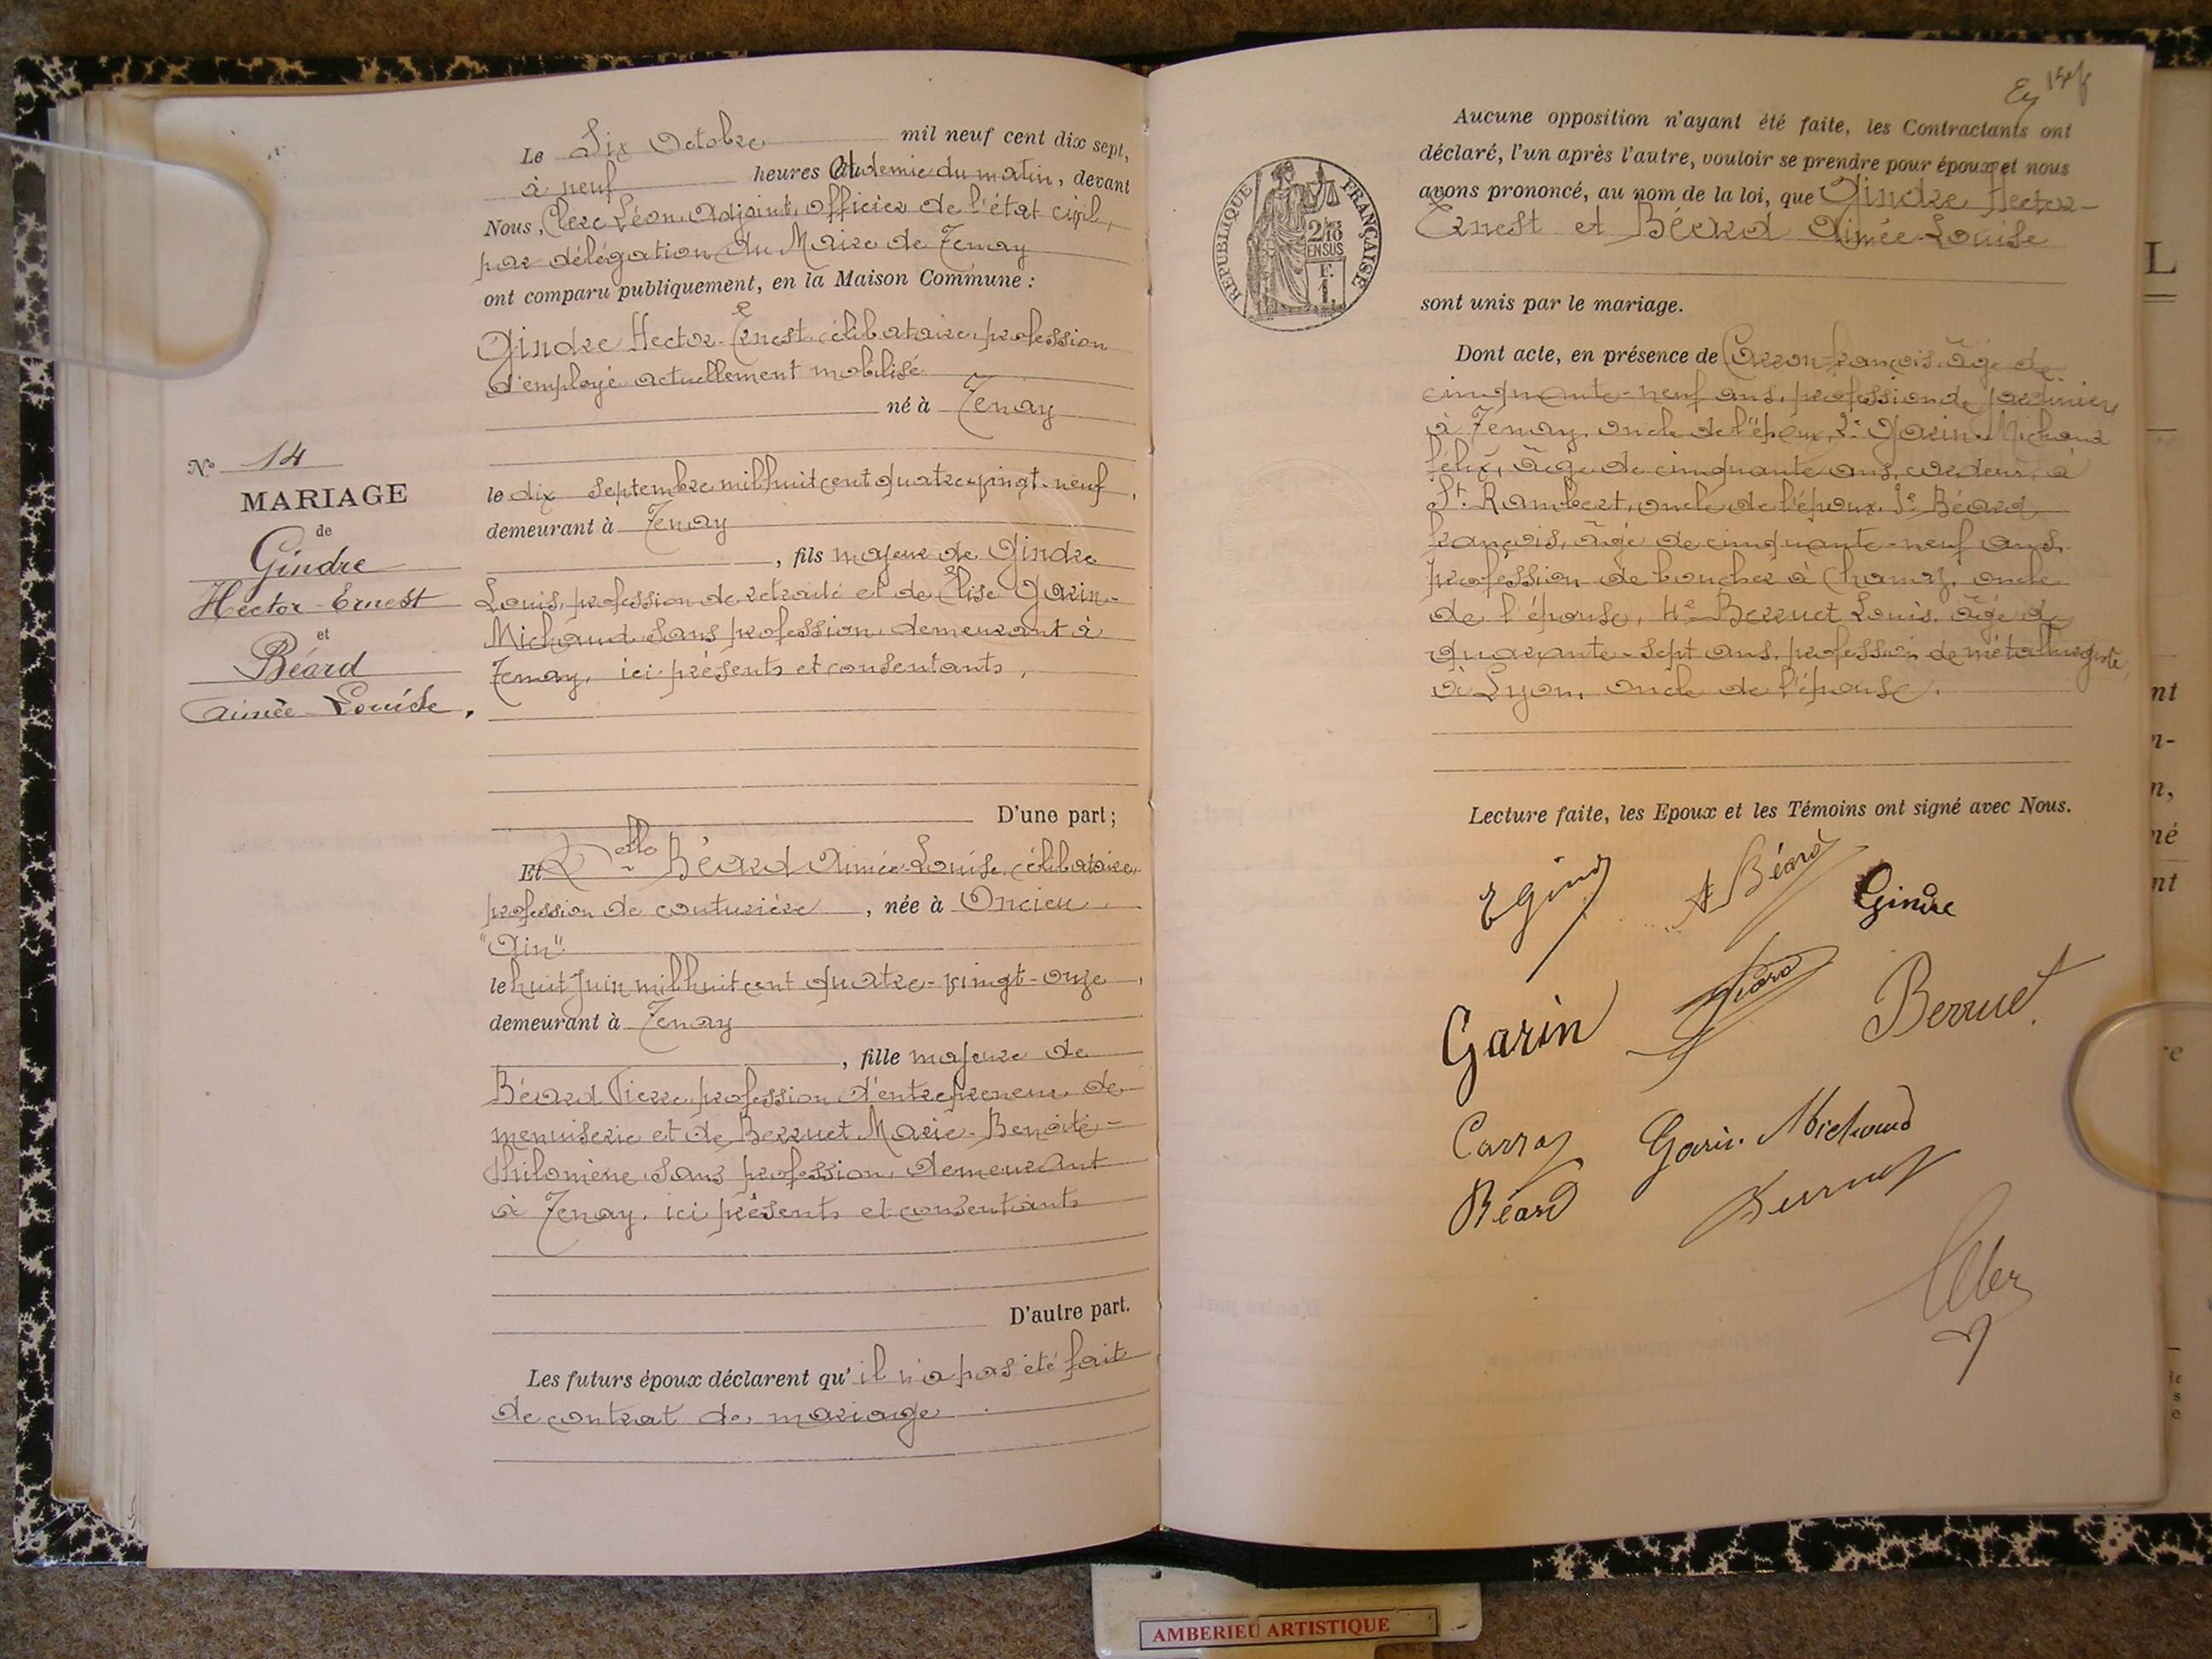 Le Six Octobre mil neuf cent dix sept,
à neuf heures et demie du matin, devant
Nous, Clerc Léon, Adjoint, officier de l'état civil,
par délégation du Maire de Tenay
ont comparu publiquement, en la Maison Commune :
Gindre Hector-Ernest, célibataire, profession
d'employé actuellement mobilisé
né à Tenay
le dix Septembre mil huit cent quatre-vingt-neuf,
demeurant à Tenay
, fils majeur de Gindre
Louis, profession de retraité et de Elise Garin-
Michaud sans profession, demeurant à
Tenay, ici présents et consentants,
D'une part ;
Et Delle Béard Aimée-Louise, célibataire,
profession de couturière, née à Oncieu
"Ain"
le huit Juin mil huit cent quatre-vingt-onze,
demeurant à Tenay
, fille majeure de
Béard Pierre, profession d'entrepreneur de
menuiserie et de Berruet Marie-Benoite-
Philomène, sans profession, demeurant
à Tenay, ici présents et consentants
D'autre part.
Les futurs époux déclarent qu'il n'a pas été fait
de contrat de mariage.
No 14
MARIAGE
de
Gindre
Hector-Ernest
et
Béard
Aimée-Louise.
REPUBLIQUE FRANÇAISE
2/10
EN SUS
F.
1.
Aucune opposition n'ayant été faite, les Contractants ont
déclaré, l'un après l'autre, vouloir se prendre pour époux, et nous
avons prononcé, au nom de la loi, que Gindre Hector-
Ernest et Béard Aimée-Louise
sont unis par le mariage.
Dont acte, en présence de François, âgé de
cinquante-neuf ans, profession de
à Tenay, oncle de l'époux, 2e Garin-Michaud
Félix, âgé de cinquante ans, cardeur, à
St. Rambert, oncle de l'époux, 3e Béard
François, âgé de cinquante-neuf ans,
profession de boucher à oncle
de l'épouse, 4e Berruet Louis, âgé de
quarante-sept ans, profession de métallurgiste,
à Lyon, oncle de l'épouse.
Lecture faite, les Epoux et les Témoins ont signé avec Nous.
A Béard Gindre
Garin Berruet
Garin-Michaud
Béard
AMBERIEU ARTISTIQUE